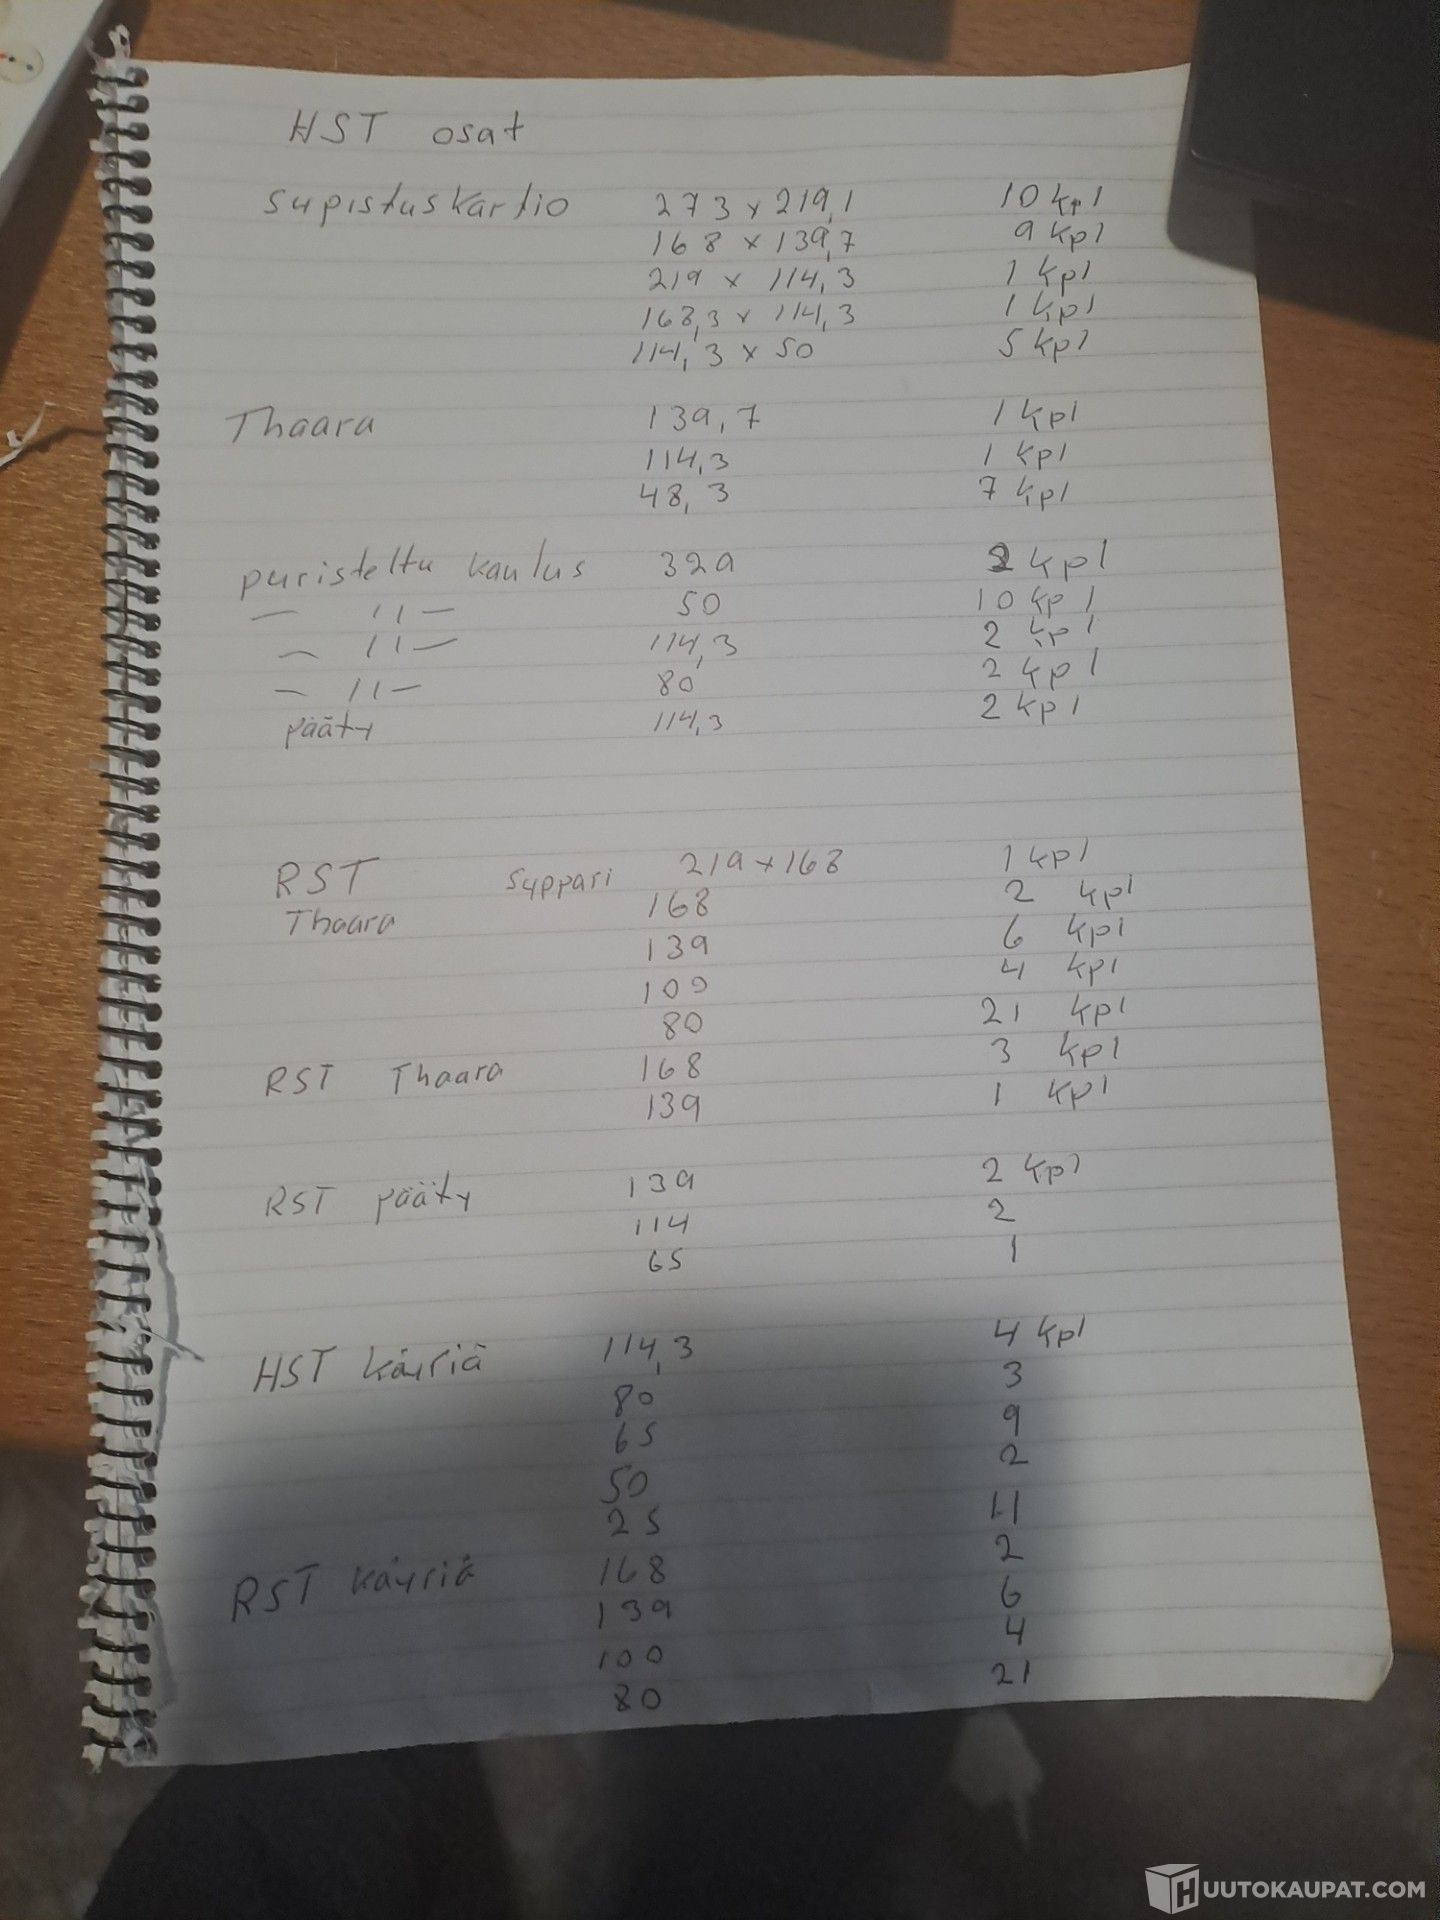 HST osat
supistuskartio 273 x 219,1 10 kpl
168 x 139,7 9 kpl
219 x 114,3 1 kpl
168,3 x 114,3 1 kpl
114,3 x 50 5 kpl
Thaara 139,7 1 kpl
114,3 1 kpl
48,3 7 kpl
puristeltu kaulus 329 2 kpl
— 11 — 50 10 kpl
— 11 — 114,3 2 kpl
— 11 — 80 2 kpl
pääty 114,3 2 kpl
RST suppari 219 x 168 1 kpl
Thaara 168 2 kpl
139 6 kpl
100 4 kpl
80 21 kpl
RST Thaara 168 3 kpl
139 1 kpl
RST pääty 139 2 kpl
114 2
65 1
HST käyriä 114,3 4 kpl
80 3
65 9
50 2
25 11
RST käyriä 168 2
139 6
100 4
80 21
HUUTOKAUPAT.COM